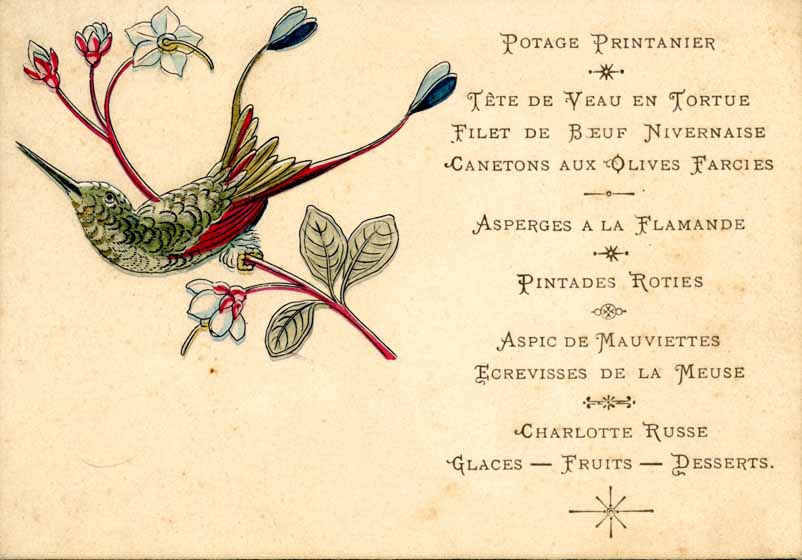 Potage Printanier
Tête de Veau en Tortue
Filet de Bœuf Nivernaise
Canetons aux Olives Farcies
Asperges a la Flamande
Pintades Roties
Aspic de Mauviettes
Ecrevisses de la Meuse
Charlotte Russe
Glaces — Fruits — Desserts.